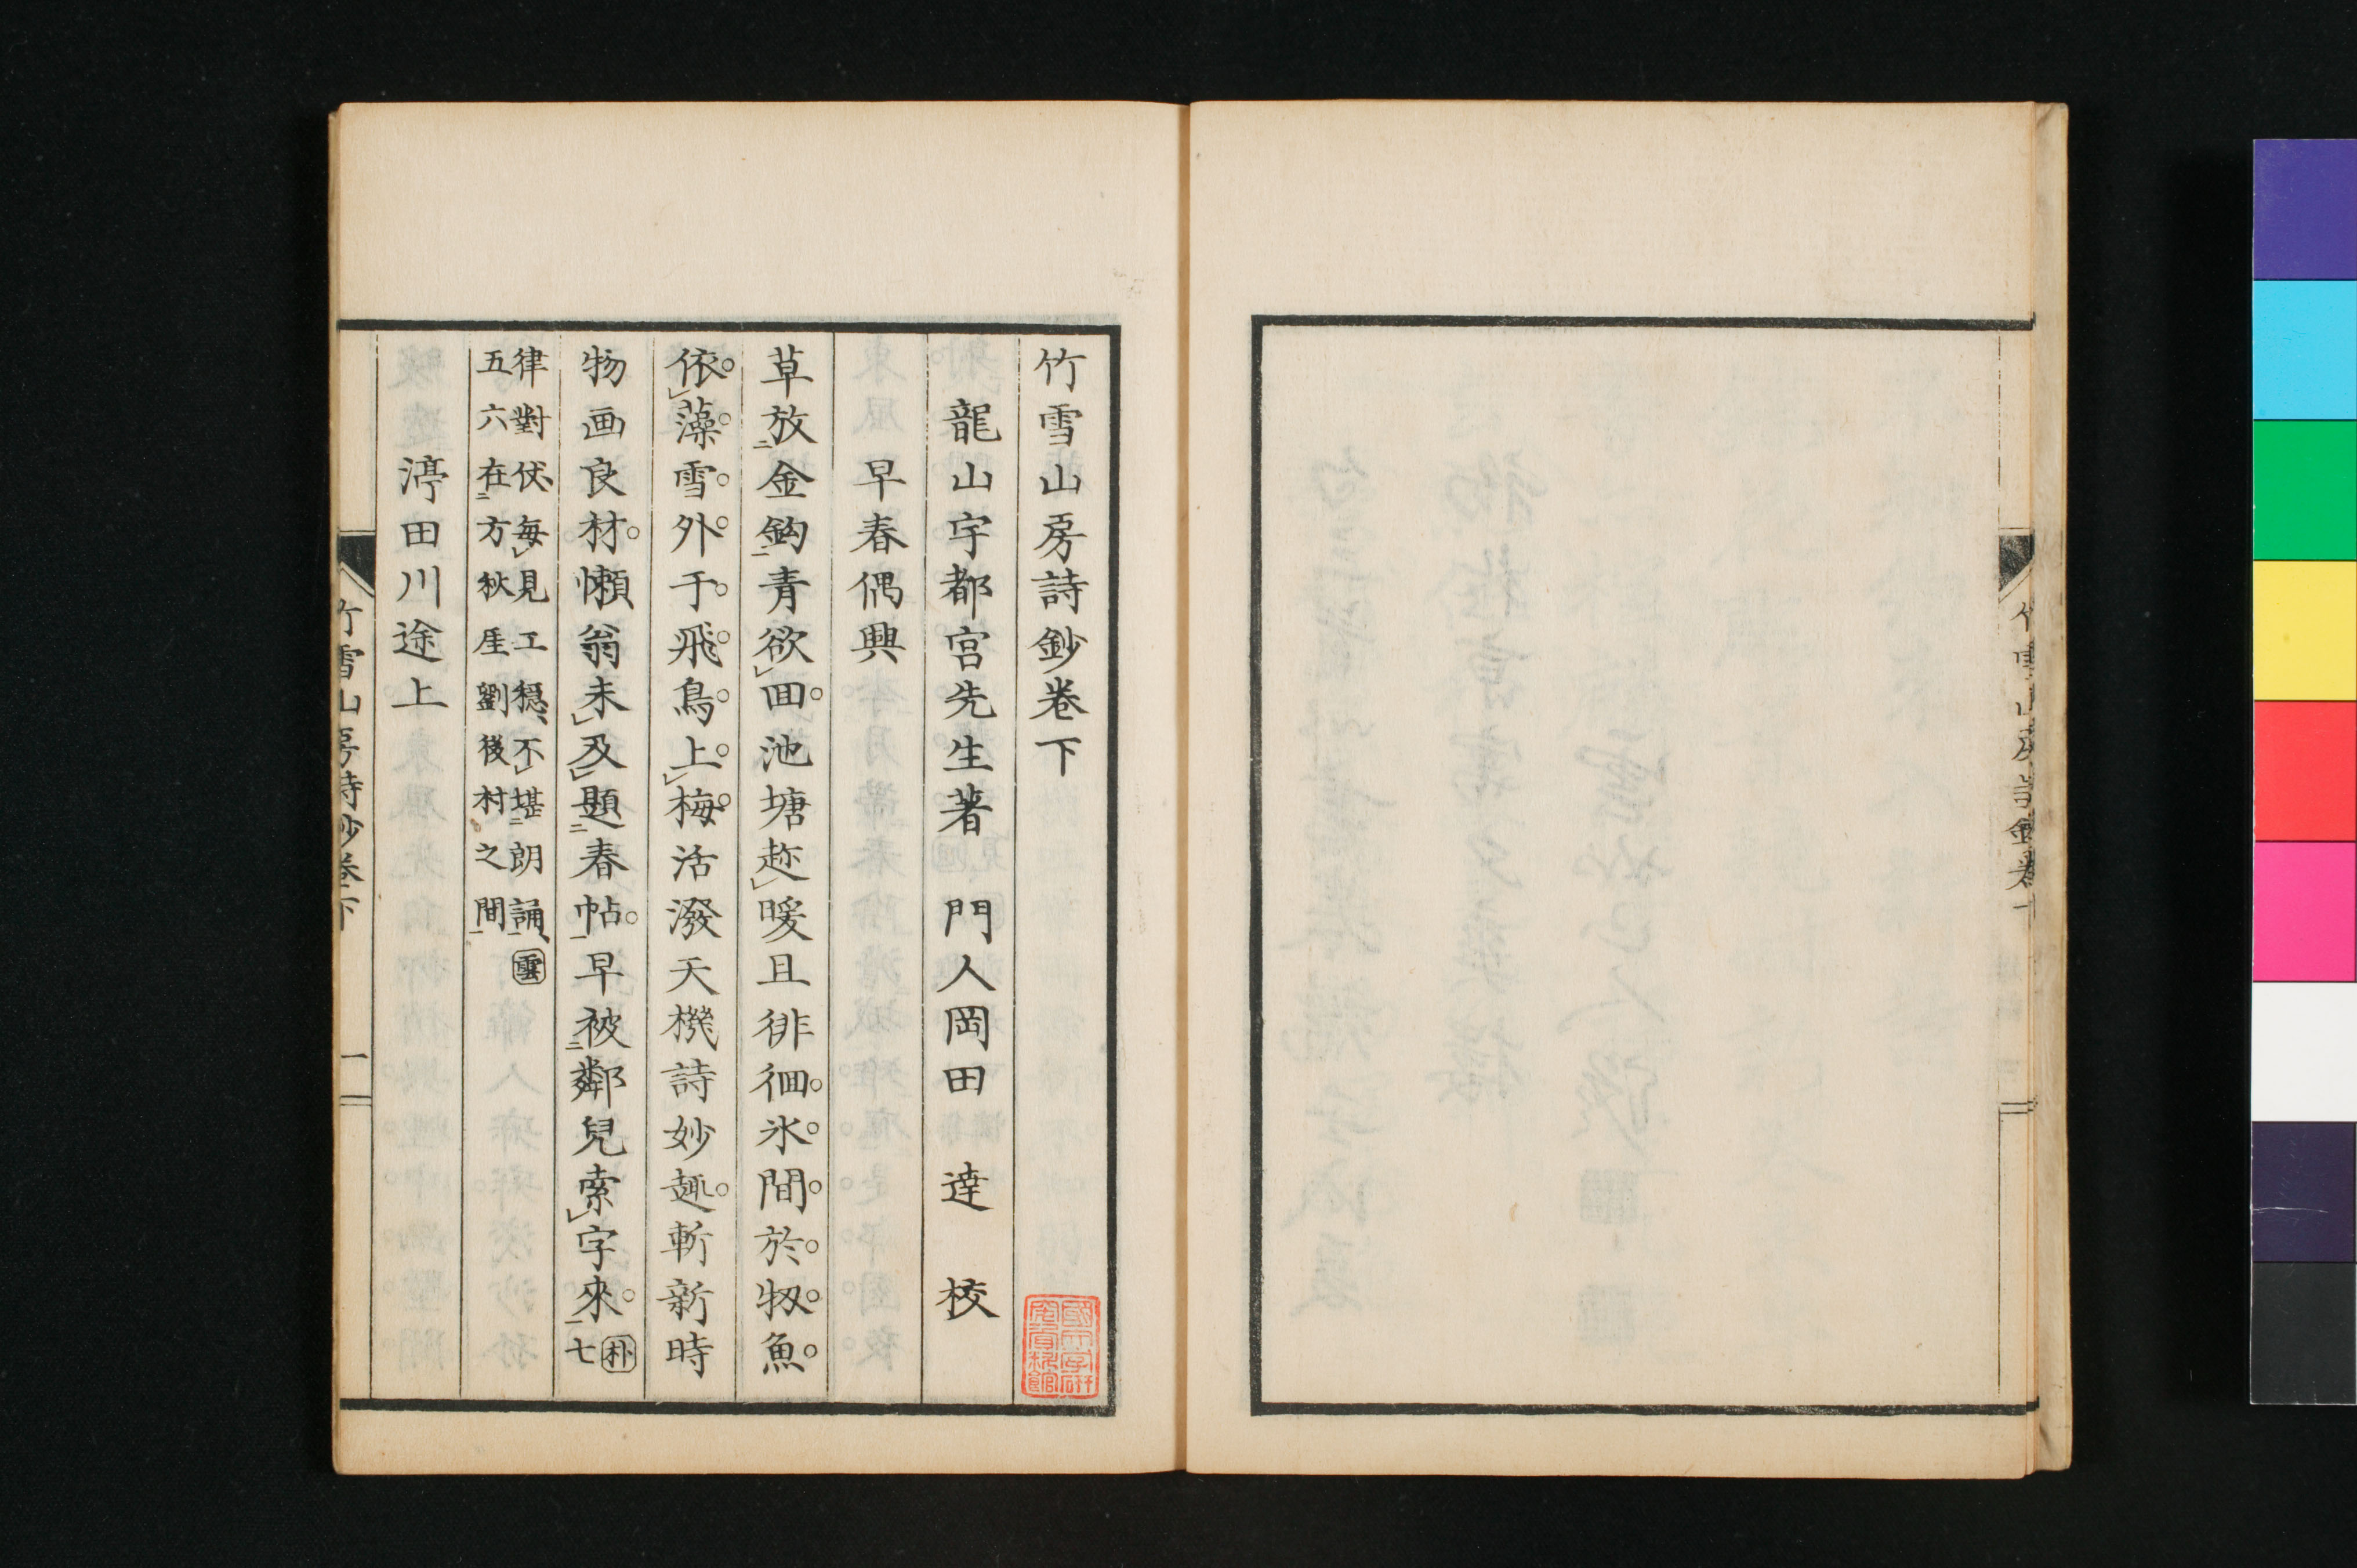 竹雪山房詩鈔卷下
龍山宇都宮先生著　門人岡田　達　校
早春偶興
草放金鈎青欲回池塘趂暖且徘徊氷間於物魚
依藻雪外于飛鳥上梅活潑天機詩妙趣斬新時
物画良材懶翁未及題春帖早被鄰兒索字來朴七
律對伏每見工穩不堪朗誦雲
五六在方秋厓劉後村之間
渟田川途上
竹雪山房詩鈔卷下
一
國文學研
究資料館